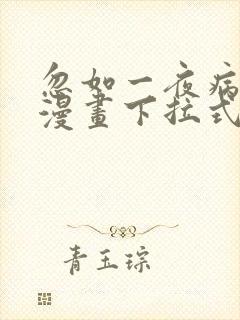 忽如一夜病
漫畫下拉式
青玉琮